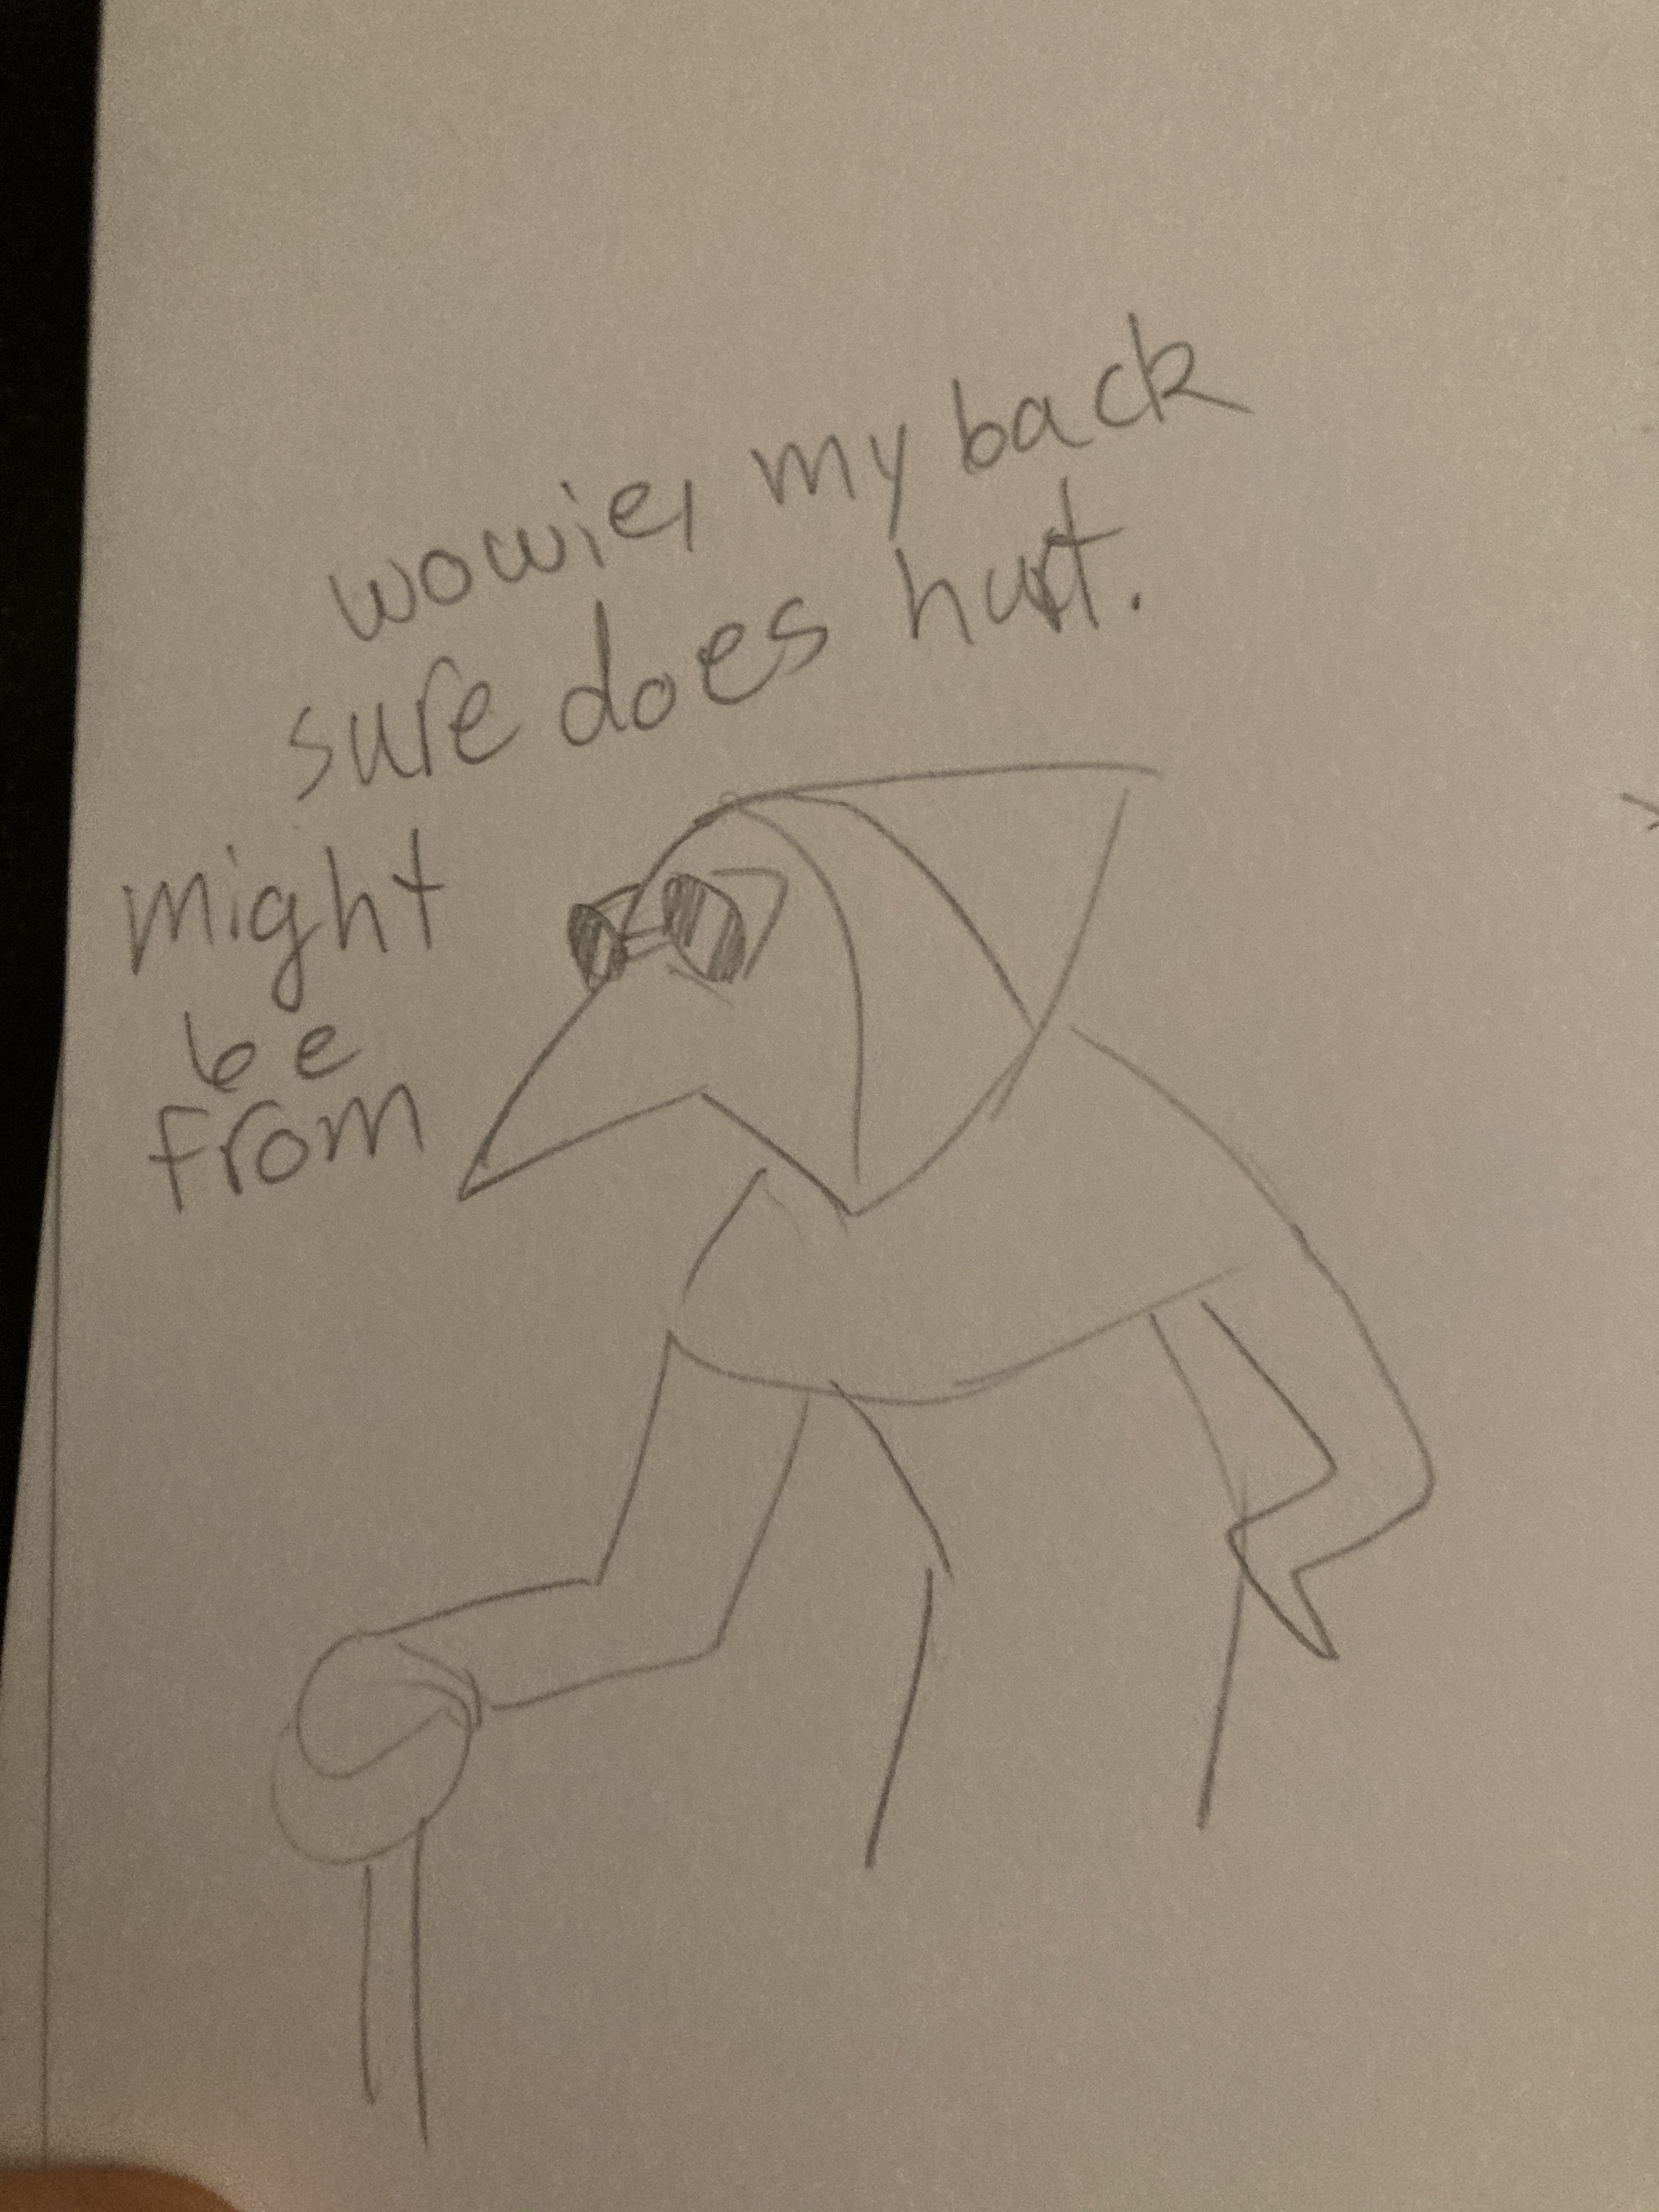 wowie, my back
sure does hurt.
might
be
from